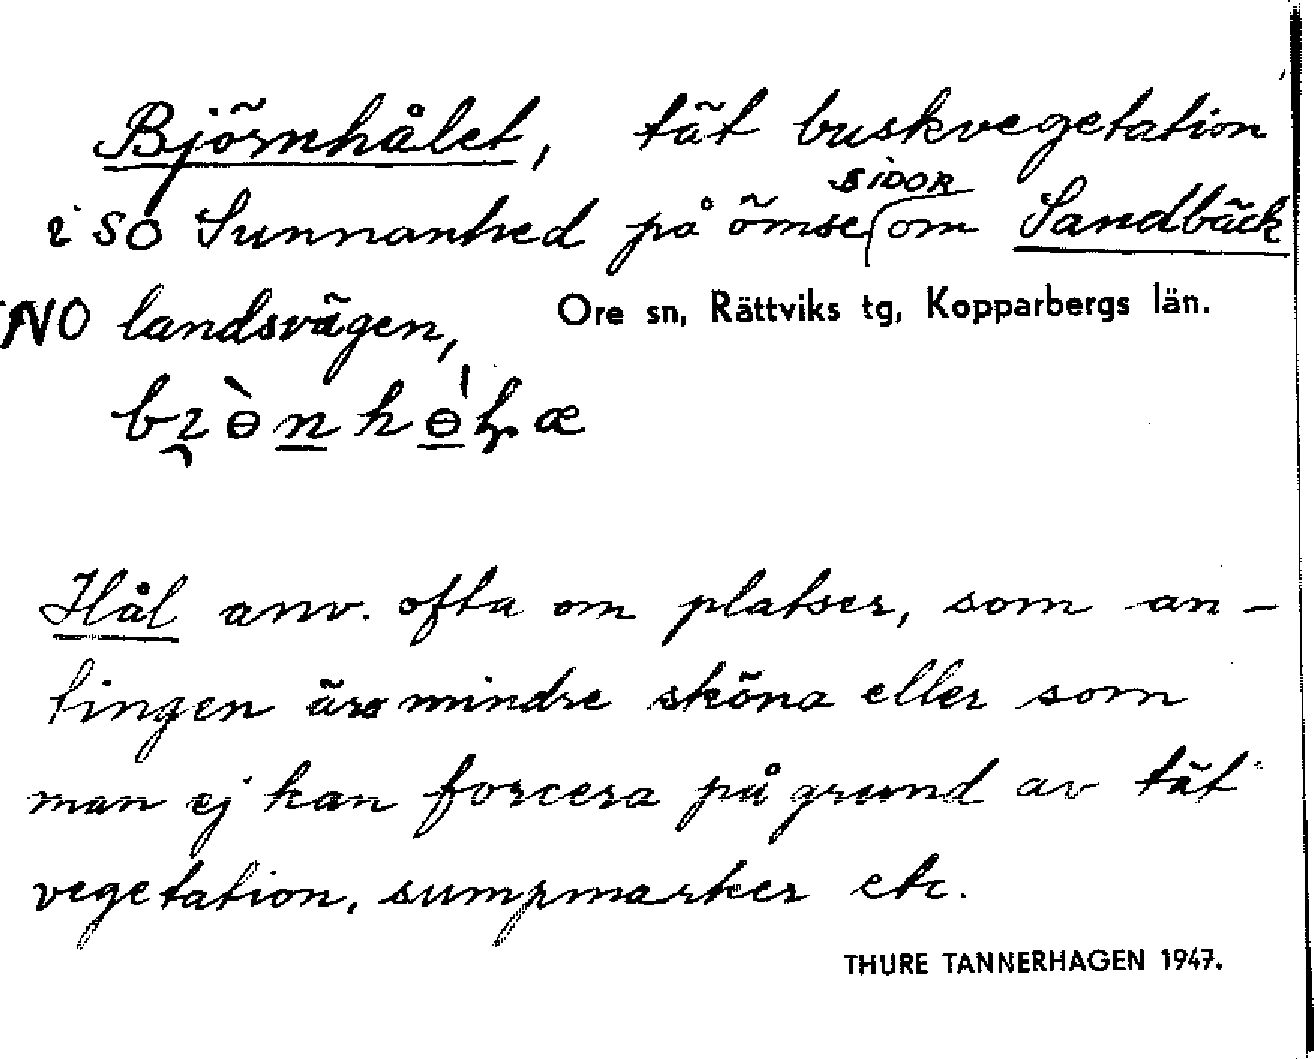 Björnhålet, tät buskvegetation
i SO Sunnanhed på ömse SIDOR om Sandbäck
NO landsvägen, Ore sn, Rättviks tg, Kopparbergs län.
Hål anv. ofta om platser, som an-
tingen äro mindre sköna eller som
man ej kan forcera på grund av tät
vegetation, sumpmarker etc.
THURE TANNERHAGEN 1947.